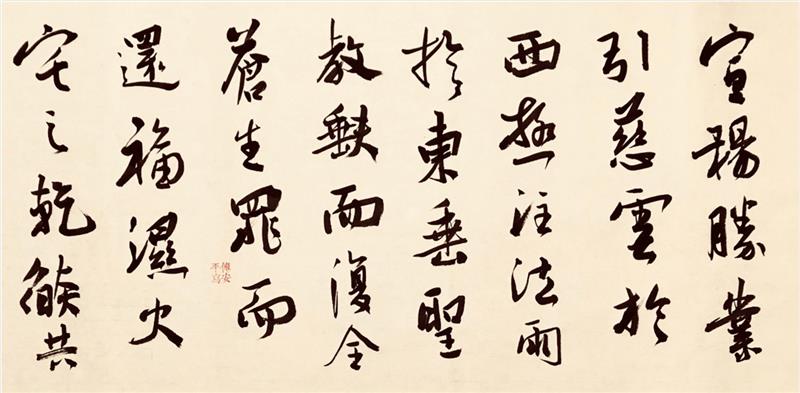 宣揚勝業
引慈雲於
西極注法雨
於東垂聖
教缺而復全
蒼生罪而
還福濕火
宅之乾燄共